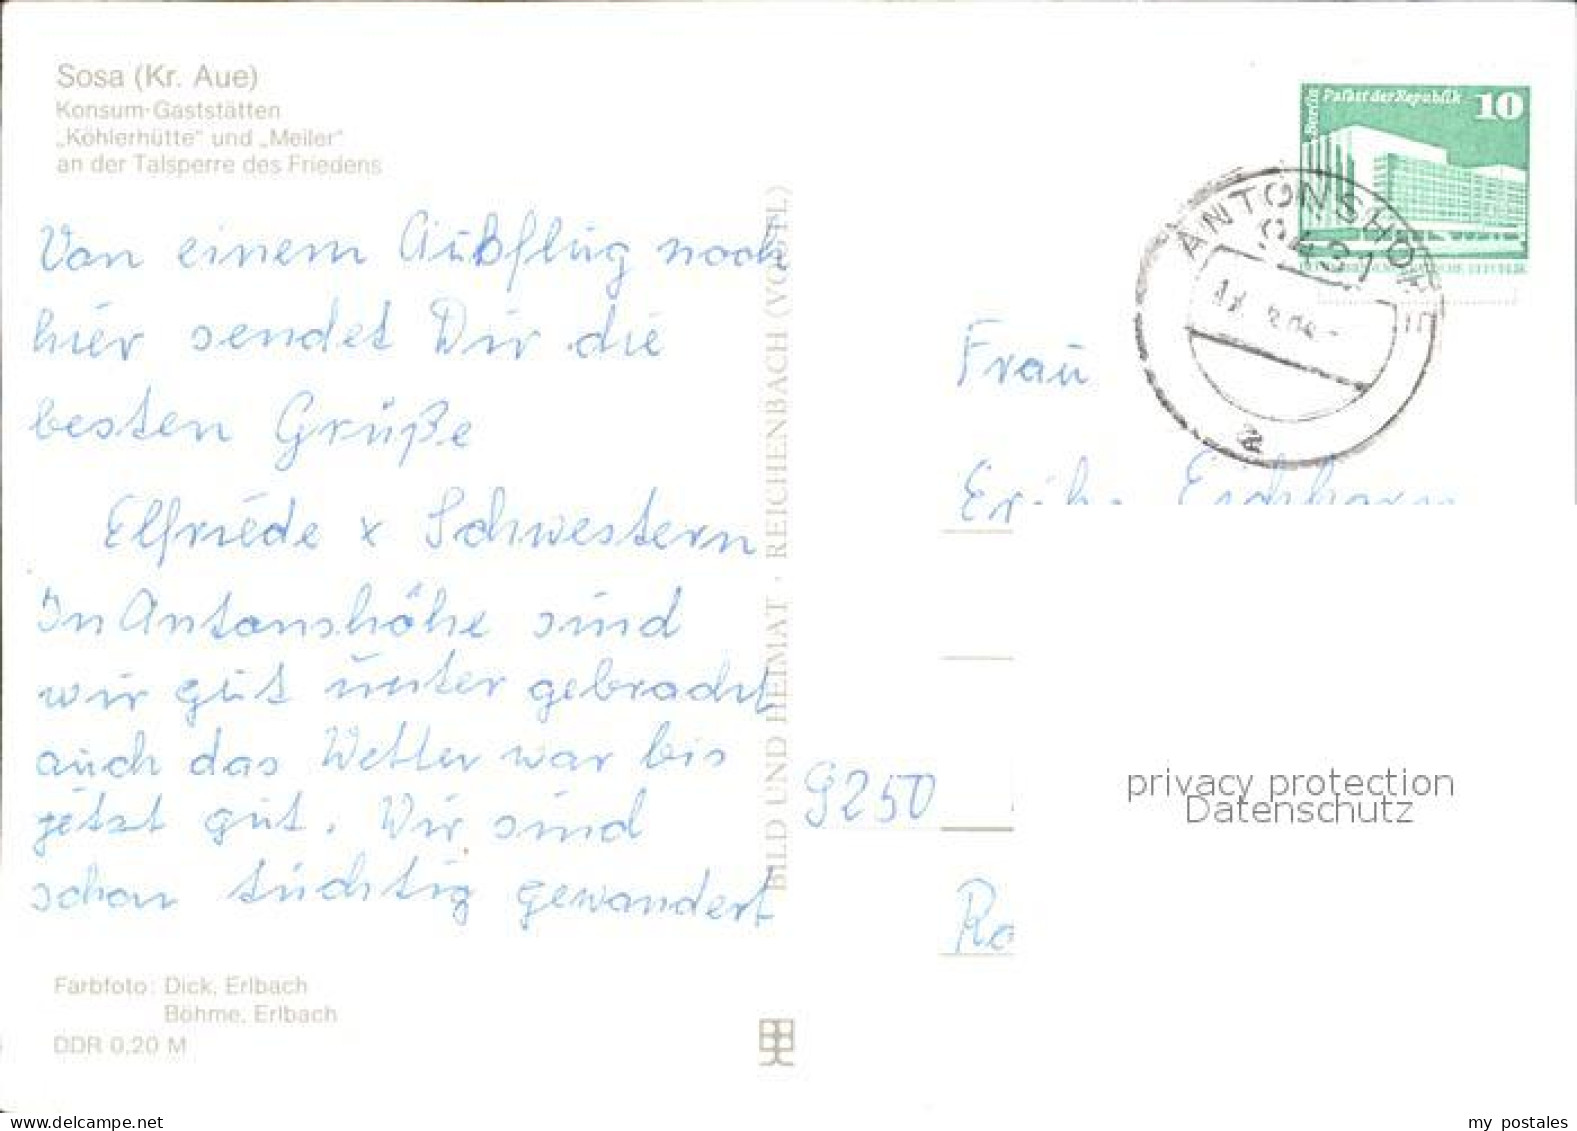 Sosa (Kr. Aue)
Konsum-Gaststätten
„Köhlerhütte" und „Meiler"
an der Talsperre des Friedens
Von einem Außflug noch
hier sendet Dir die
besten Grüße
Elfriede x Schwestern
In Antonshöhe sind
wir gut unter gebracht
auch das Wetter war bis
jetzt gut. Wir sind
schon tüchtig gewandert
Farbfoto: Dick, Erlbach
Böhme, Erlbach
DDR 0,20 M
BILD UND HEIMAT · REICHENBACH (VOGTL)
Berlin
Palast der Republik 10
ANTONSHÖHE
9431
a
Frau
9250
privacy protection
Datenschutz
www.delcampe.net
my_postales